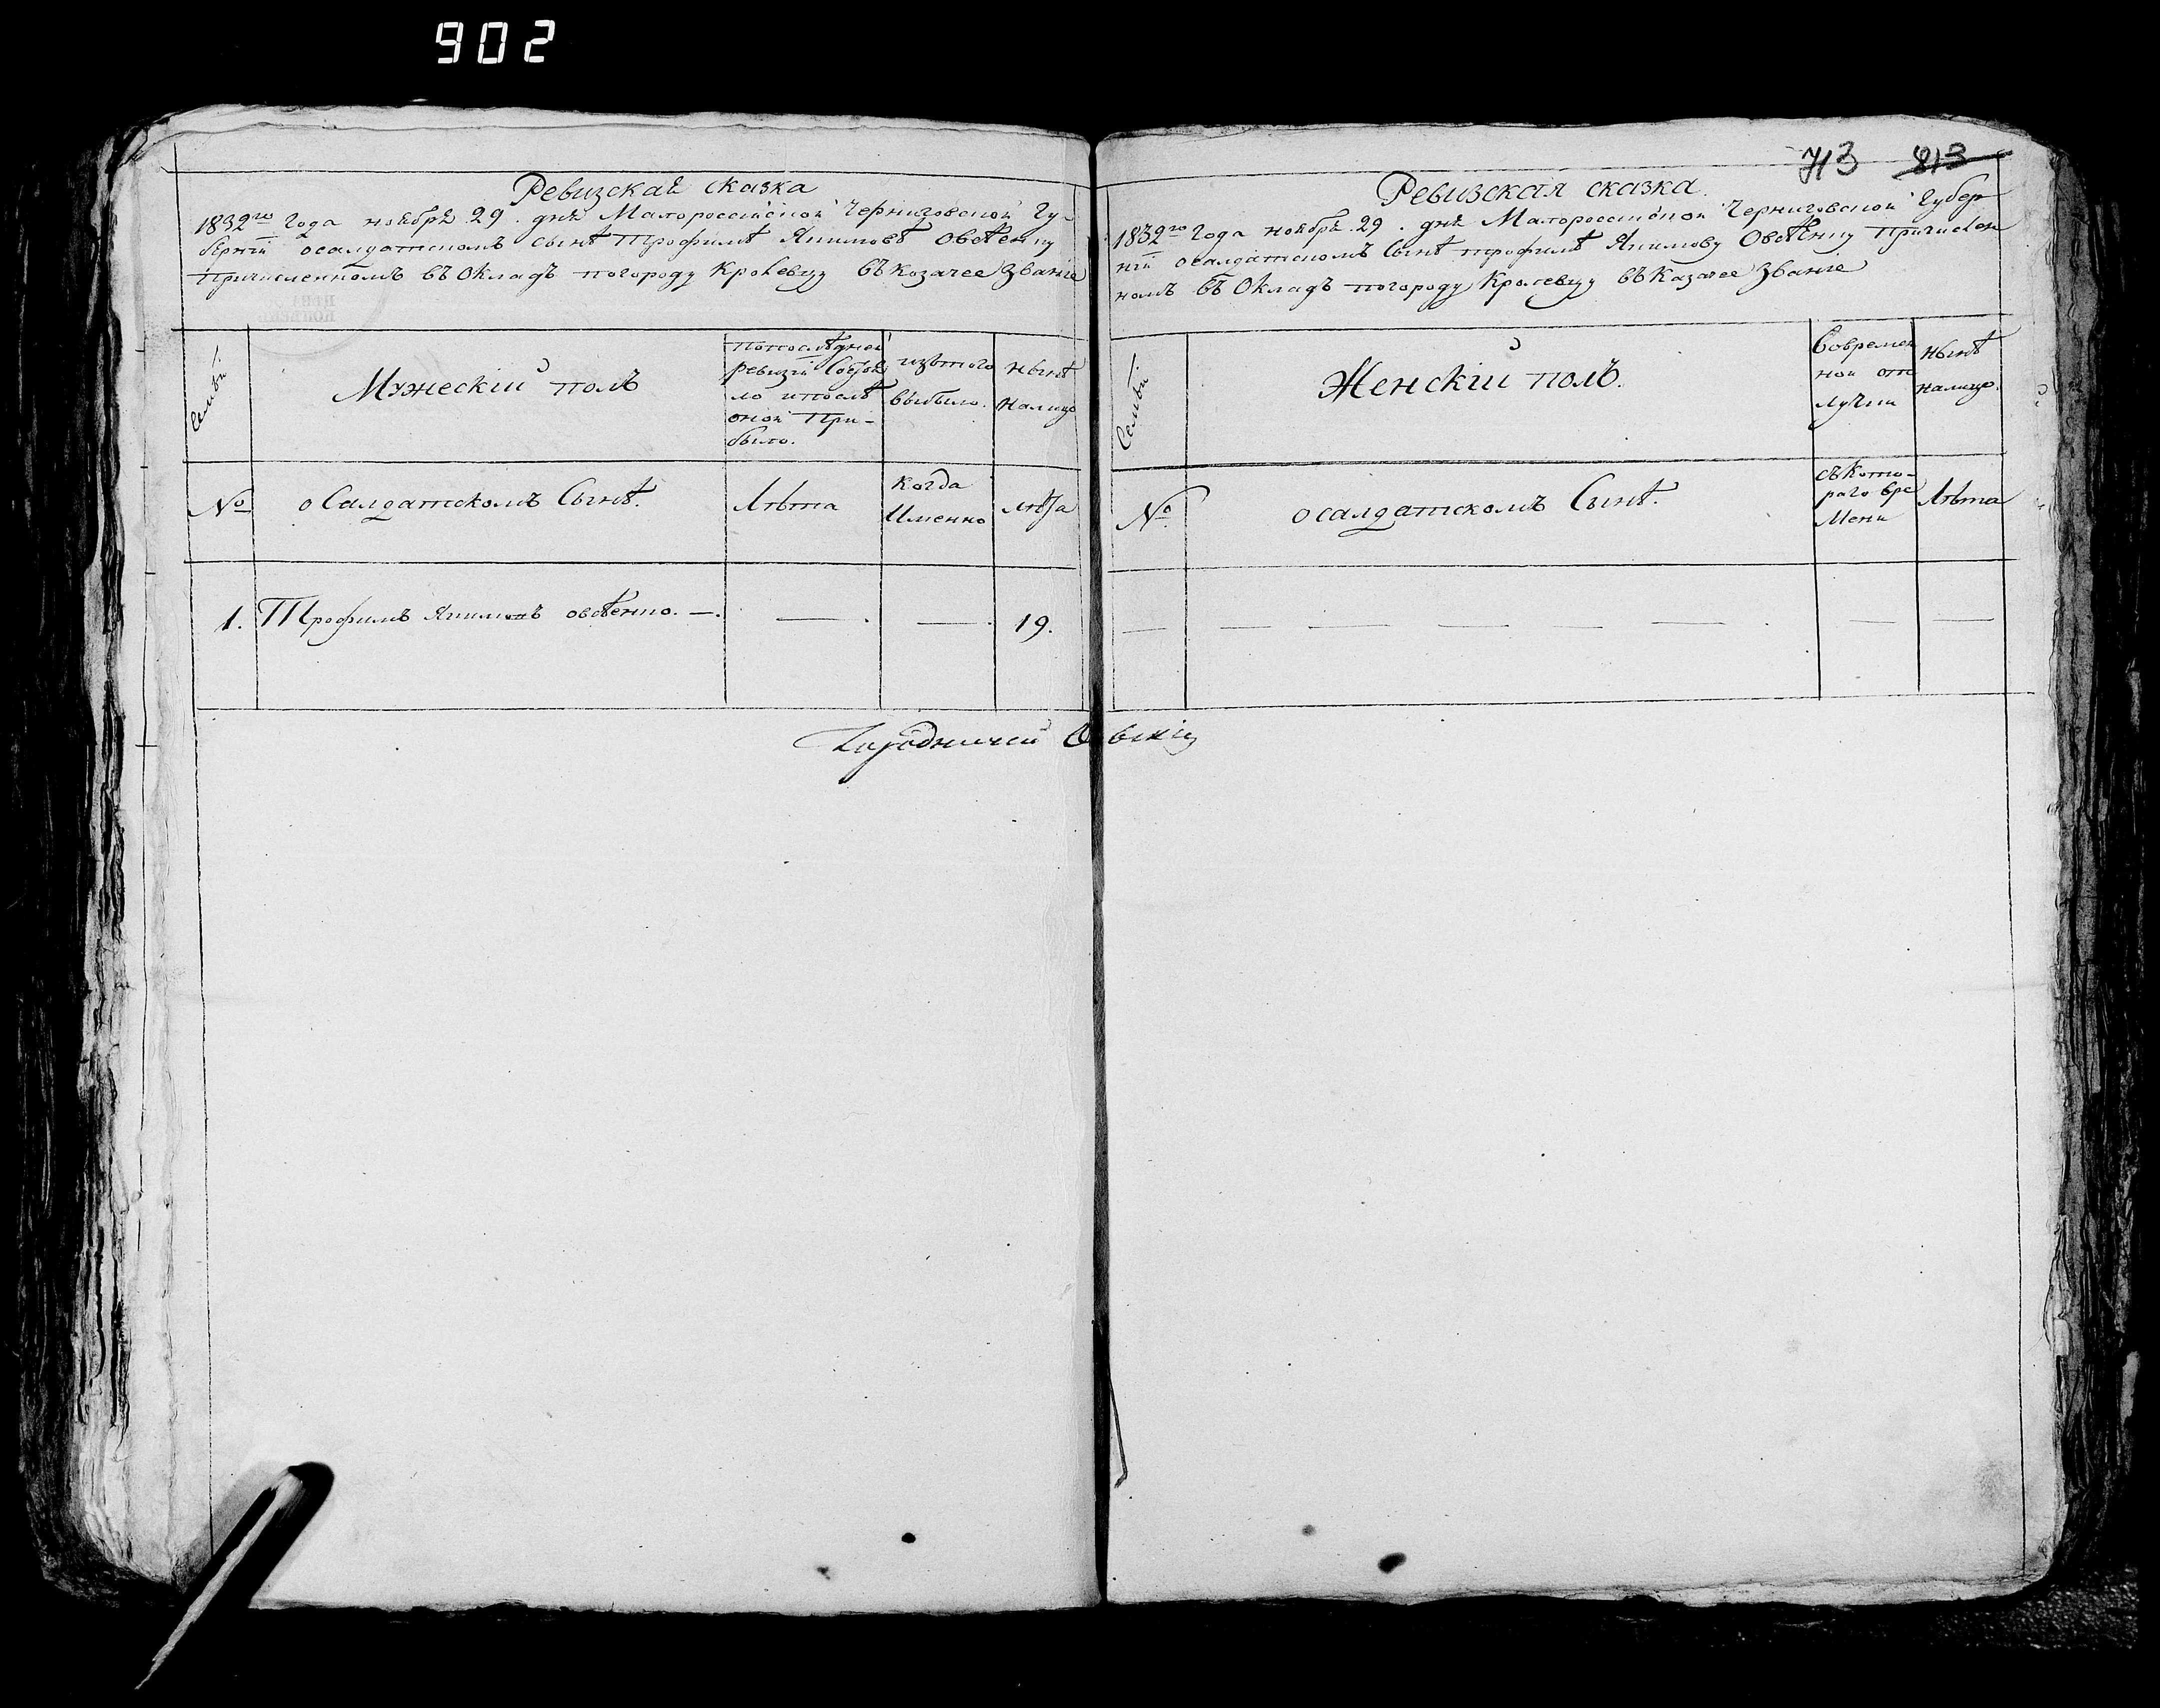 902
713 813
Ревизская сказка
1832го Года ноября 29. дня Малороссійской Черниговской Гу-
берніи осалдатскомъ сынѣ Трофимѣ Якимовѣ Овсѣенку
Причисленномъ въ Окладъ погороду Кролевцу въ козачее Званіе
Семьи
Мужескій полъ
попослѣдней
ревизіи Состоя
ло ипослѣ
оной При-
было.
изътого
выбыло.
нынѣ
налицо
№
о Салдатскомъ Сынѣ.
Лѣта
Когда
Именно
лѣта
1. Трофимъ Якимовъ овсѣенко. — — — 19.
Ревизская сказка.
1832го Года ноября 29. дня Малороссійской Черниговской Губер
ніи осалдатскомъ Сынѣ трофимѣ Якимову Овсѣенку Причислен
номъ въ Окладъ погороду Кролевцу въ Казачее Званіе
Семьи
Женскій полъ.
Вовремен
ной отъ
лучки
нынѣ
налицо.
№
осалдатскомъ Сынѣ.
съКото-
раго вре
Мени
Лѣта
— — — — — — — — —
Городничій